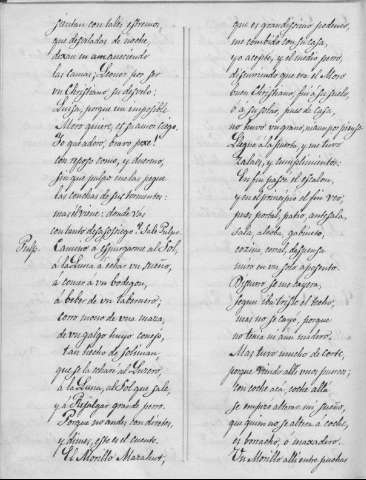 juntan con tales estremos,
que desveladas de noche,
dexan en amaneciendo
las camas; Leonor por ser
vn Christiano su desvelo:
Luisa, porque un imposible
Moro quiere, es su amor ciego.
Yo que adoro, bravo poxe!
con reposo como, y duermo,
sin que pulgo melas pegue
las conchas de sus tormentos:
mas el viene: donde vàs
con tanto desasosiego? Sale Pulgo.
Pulg. Camino à espurgarme al Sol,
à la Luna à echar un sueño,
à comer a vn bodegon,
à beber de vn tabernero;
corro mono de vna maza,
de vn galgo huyo conejo,
tan hecho de Soliman,
que se la echarè al Luzero,
à la Luna, al Sol que sale,
y à Pujalgar grande perro.
Porque me ande, con dretos,
y dimes, esse es el cuento.
El Morillo Marahut,
que es grandissimo podenco,
me combidò con su casa,
yo acepto, y el medio perro,
discurriendo que era el Moro
buen Christiano, fui à su suelo,
ò à su solar, pues de casa,
no huvo vn grano, ni aun por pienso.
Lleguè à la puerta, y me hizo
zalàs, y cumplimientos:
En fin passè el escalon,
y en el principio el fin veo,
pues portal, patio, antesala,
sala, alcoba, gabinete,
cozina, corral, despensa
mira en vn solo aposento.
Discurro se me cayera,
segun iba visto el techo,
mas no se cayò, porque
no tenia ni aun madero.
Mas tuvo mucho de corte,
porque donde allì vnos puercos;
con coche acà, coche allà
se empezò alterar mi sueño,
que quien no se altera à coche,
es borracho, ò majadero.
Vn Morillo allì entre puchas